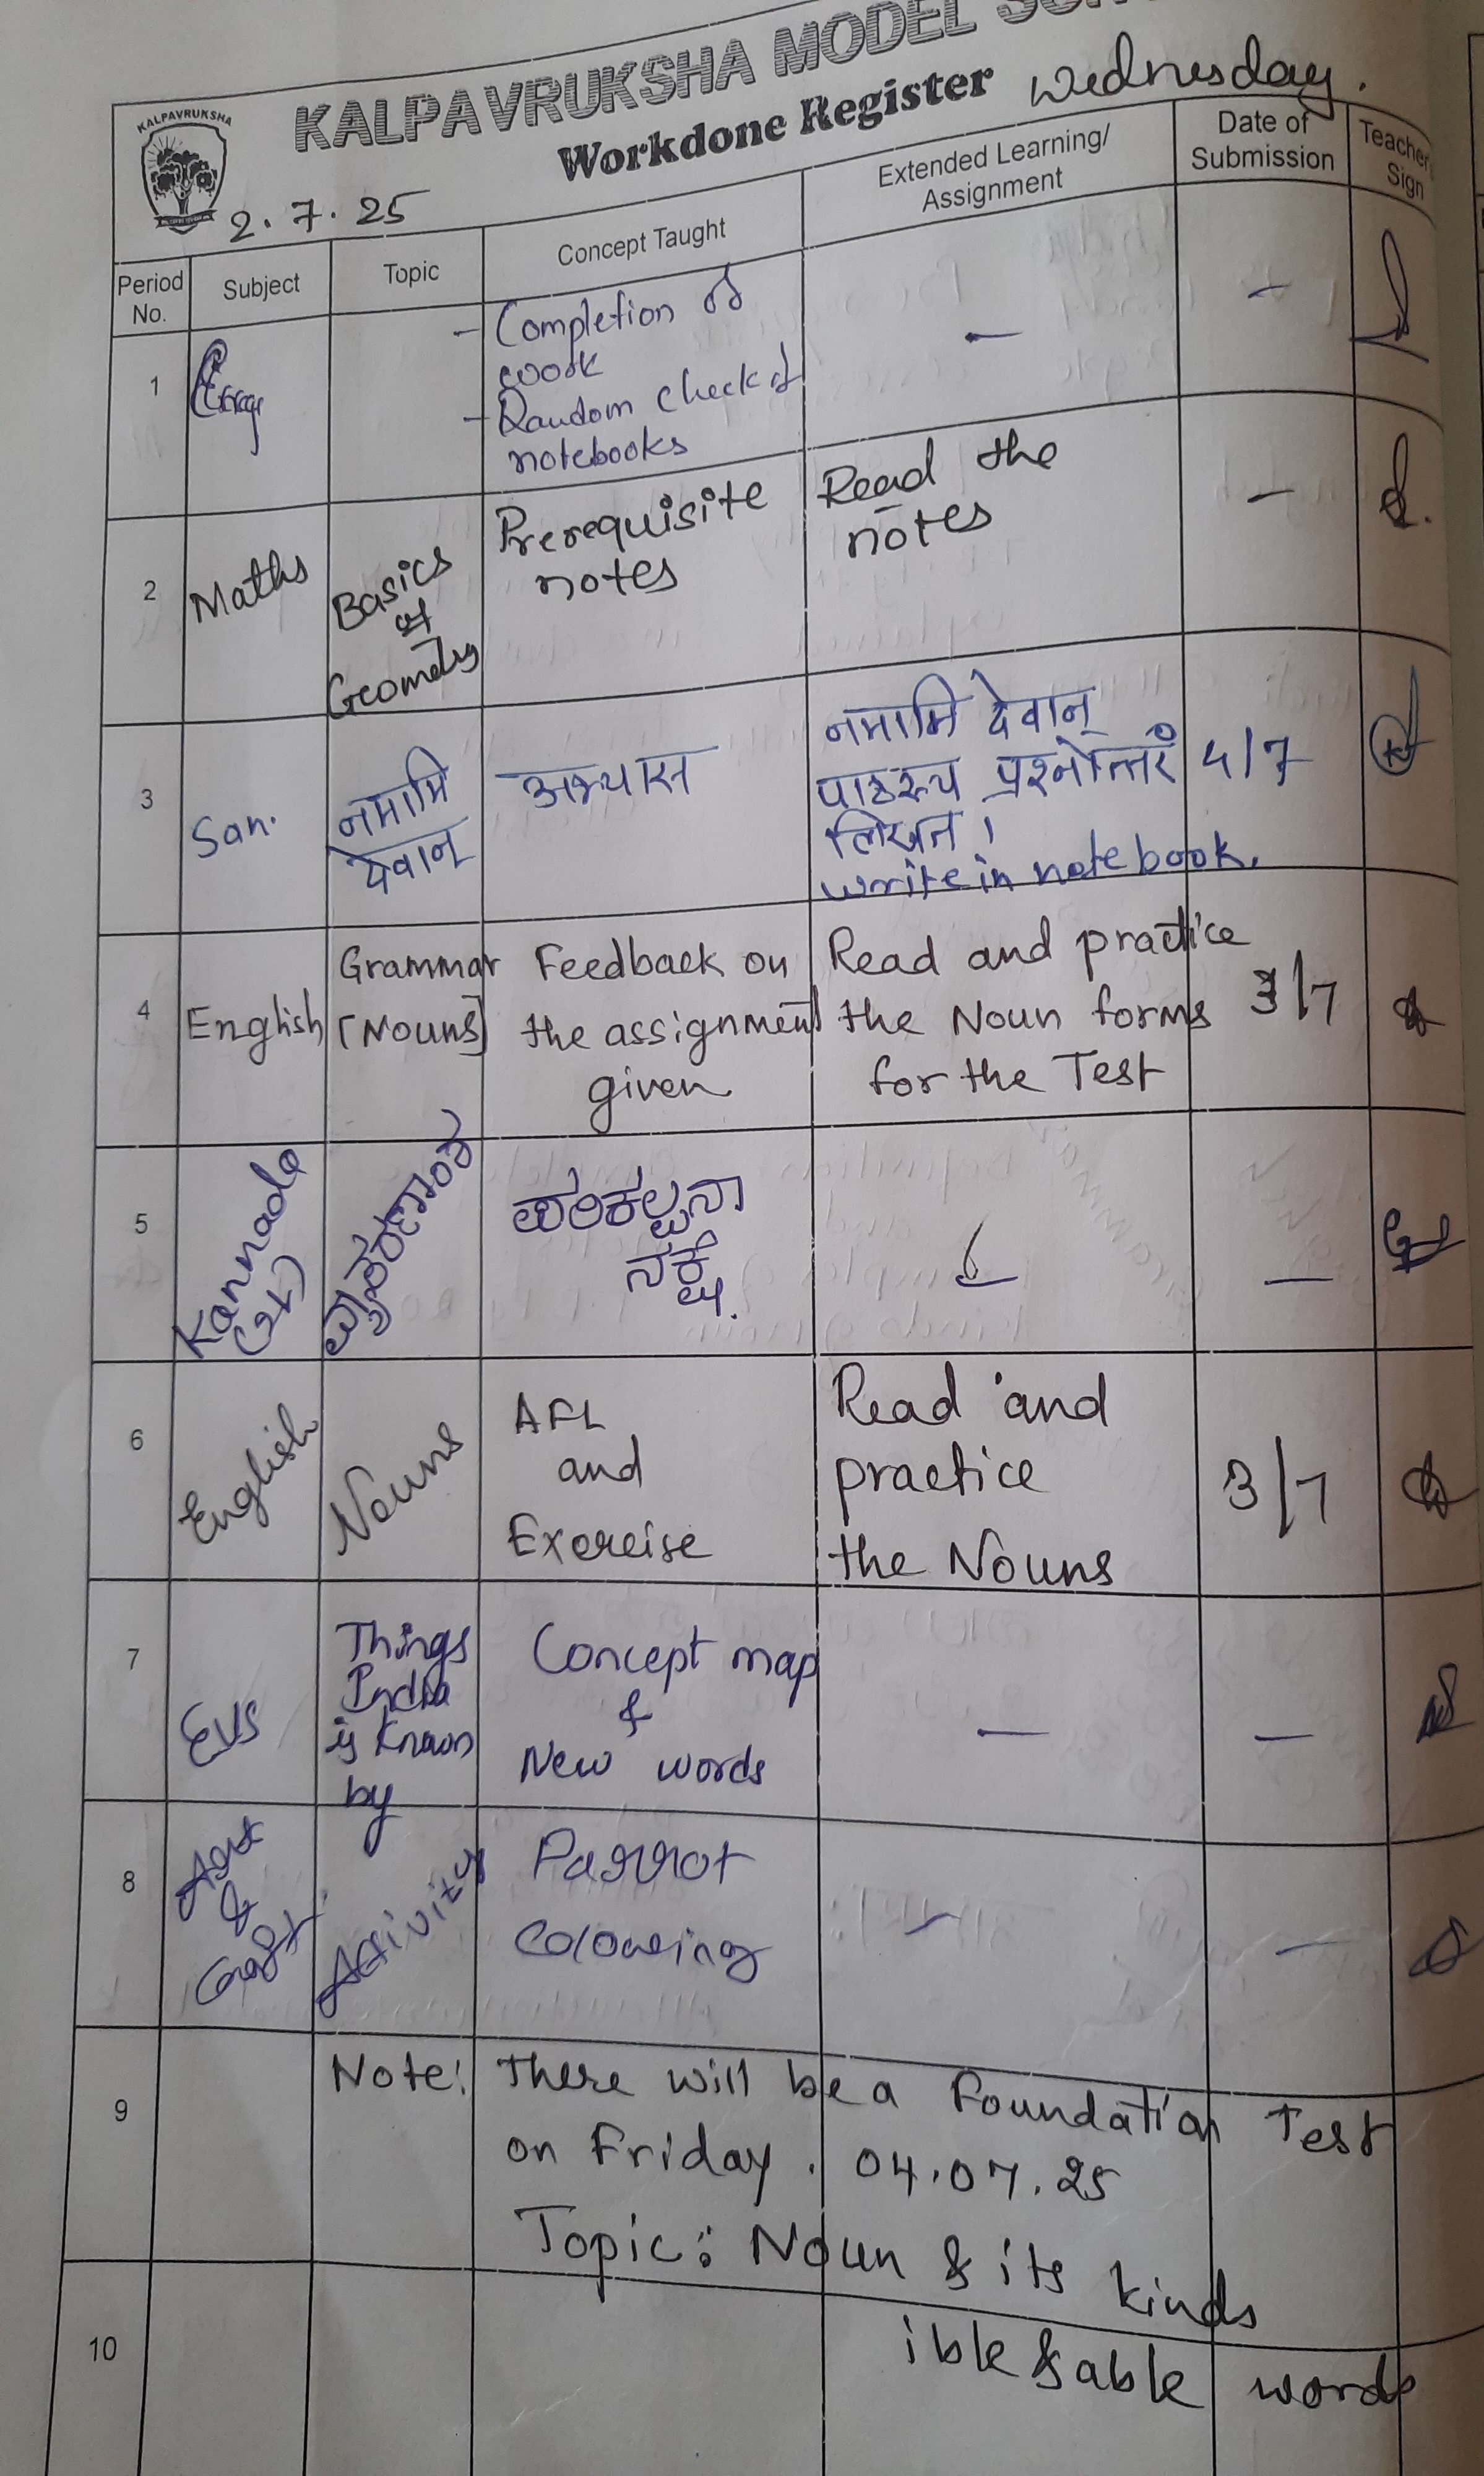 KALPAVRUKSHA MODEL
Workdone Register Wednesday.
KALPAVRUKSHA
2.7.25
Period No.
Subject
Topic
Concept Taught
Extended Learning/
Assignment
Date of
Submission
Teacher
Sign
1
- Completion of
work
- Random check of
notebooks
-
-
2
Maths
Basics
of
Geometry
Prerequisite
notes
Read the
notes
-
3
San.
नमामि
देवान्
अभ्यास
नमामि देवान्
पाठस्य प्रश्नोत्तरं
लिखत।
write in notebook.
4/7
4
English
Grammar
[Nouns]
Feedback on
the assignment
given
Read and practice
the Noun forms
for the Test
3/7
5
Kannada
ವ್ಯಾಕರಣಾಂಶ
ಪರಿಕಲ್ಪನಾ
ನಕ್ಷೆ.
-
-
6
English
Nouns
AFL
and
Exercise
Read and
practice
the Nouns
3/7
7
EVS
Things
India
is known
by
Concept map
&
New words
-
-
8
Art
&
Craft
Activity
Parrot
Colouring
-
-
9
Note: There will be a Foundation Test
on Friday. 04.07.25
Topic: Noun & its kinds
10
ible & able words